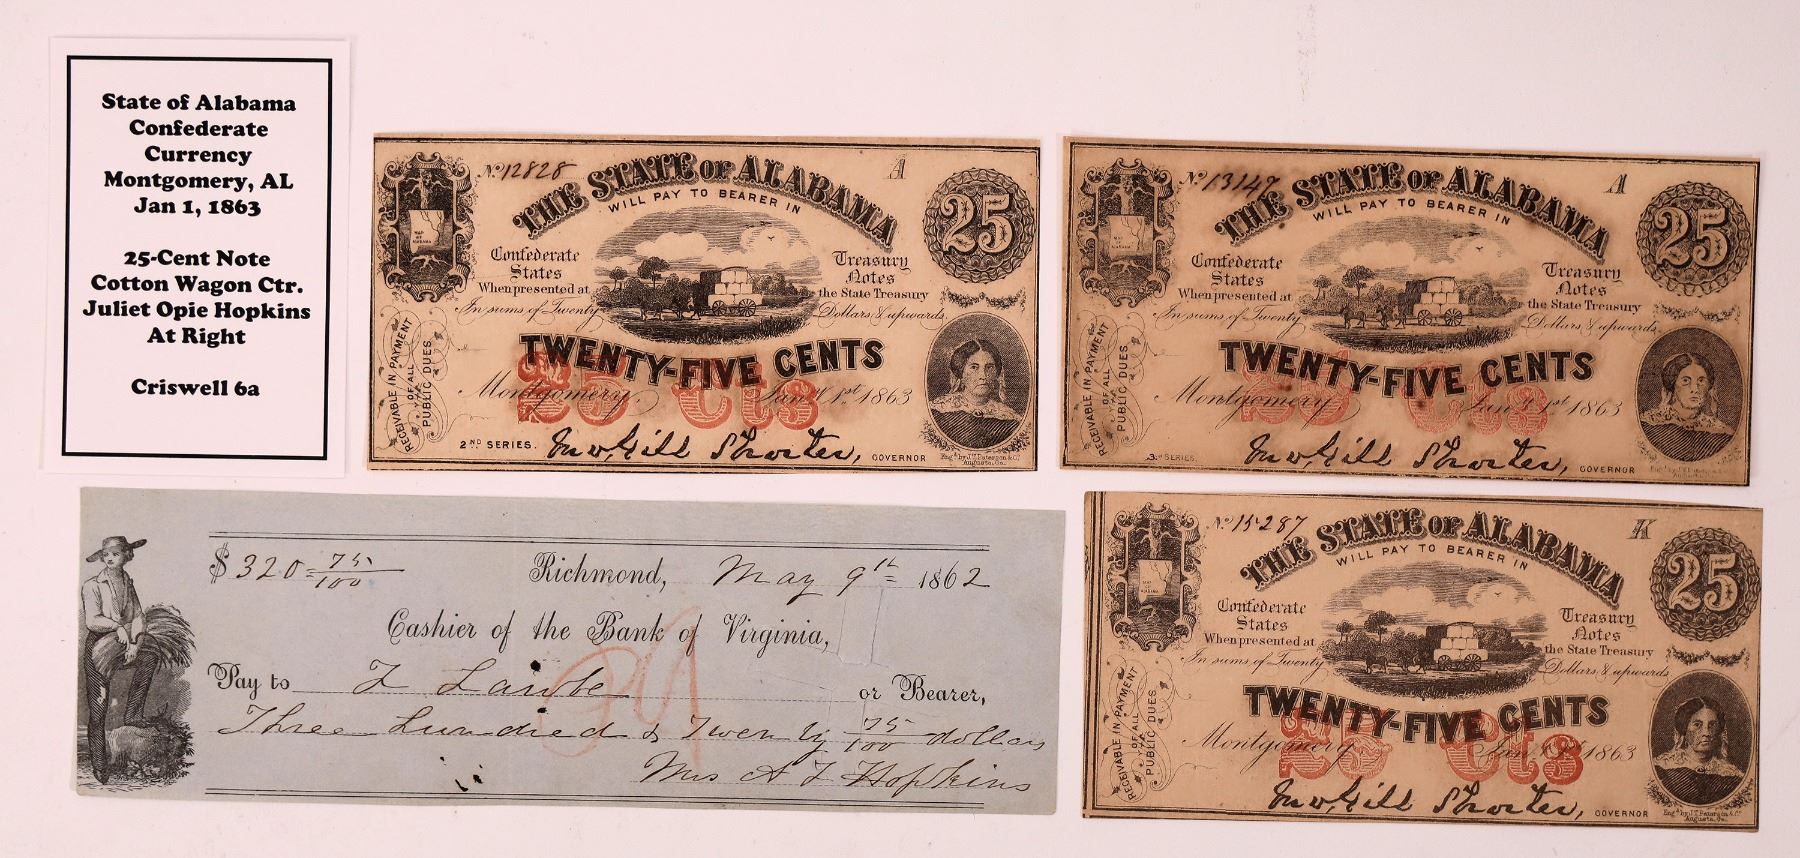 State of Alabama
Confederate
Currency
Montgomery, AL
Jan 1, 1863
25-Cent Note
Cotton Wagon Ctr.
Juliet Opie Hopkins
At Right
Criswell 6a
No. 12828
A
THE STATE OF ALABAMA
WILL PAY TO BEARER IN
25
MAP OF ALABAMA
Confederate States
Treasury Notes
When presented at
the State Treasury
In sums of Twenty
Dollars & upwards
TWENTY-FIVE CENTS
25 Cts
Montgomery Jany. 1st 1863
RECEIVABLE IN PAYMENT
OF ALL
PUBLIC DUES
2ND SERIES.
Jno. Gill Shorter, GOVERNOR
Engd. by J.T. Paterson & Co.
Augusta, Ga.
No. 13147
A
THE STATE OF ALABAMA
WILL PAY TO BEARER IN
25
Confederate States
Treasury Notes
When presented at
the State Treasury
In sums of Twenty
Dollars & upwards
TWENTY-FIVE CENTS
25 Cts
Montgomery Jany. 1st 1863
RECEIVABLE IN PAYMENT
OF ALL
PUBLIC DUES
3D SERIES.
Jno. Gill Shorter, GOVERNOR
$320 75/100
Richmond, May 9th 1862
Cashier of the Bank of Virginia,
Pay to or Bearer,
Three Hundred & Twenty 75/100 dollars
Mrs A F Hopkins
No. 15287
K
THE STATE OF ALABAMA
WILL PAY TO BEARER IN
25
Confederate States
Treasury Notes
When presented at
the State Treasury
In sums of Twenty
Dollars & upwards
TWENTY-FIVE CENTS
25 Cts
Montgomery Jany. 1st 1863
RECEIVABLE IN PAYMENT
OF ALL
PUBLIC DUES
Jno. Gill Shorter, GOVERNOR
Engd. by J.T. Paterson & Co.
Augusta, Ga.